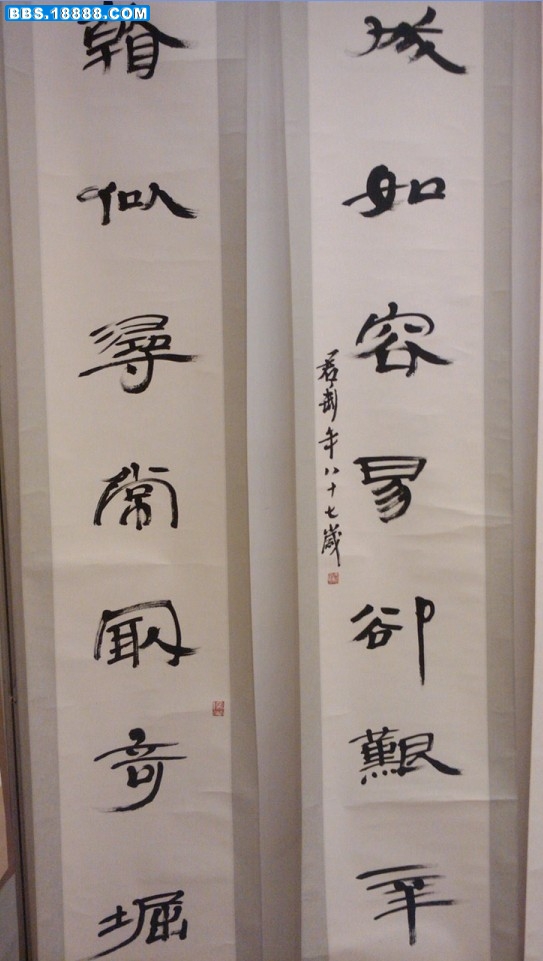 BBS.18888.COM
看似尋常冣奇堀
成如容易卻艱辛
君武年八十七歲